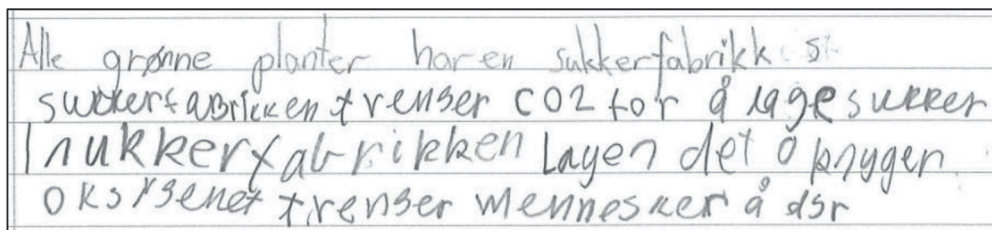 Alle grønne planter har en sukkerfabrikk
sukkerfabrikken trenger CO2 for å lage sukker
I sukkerfabrikken Lagen det
oksygenet trenger mennesker å dyr